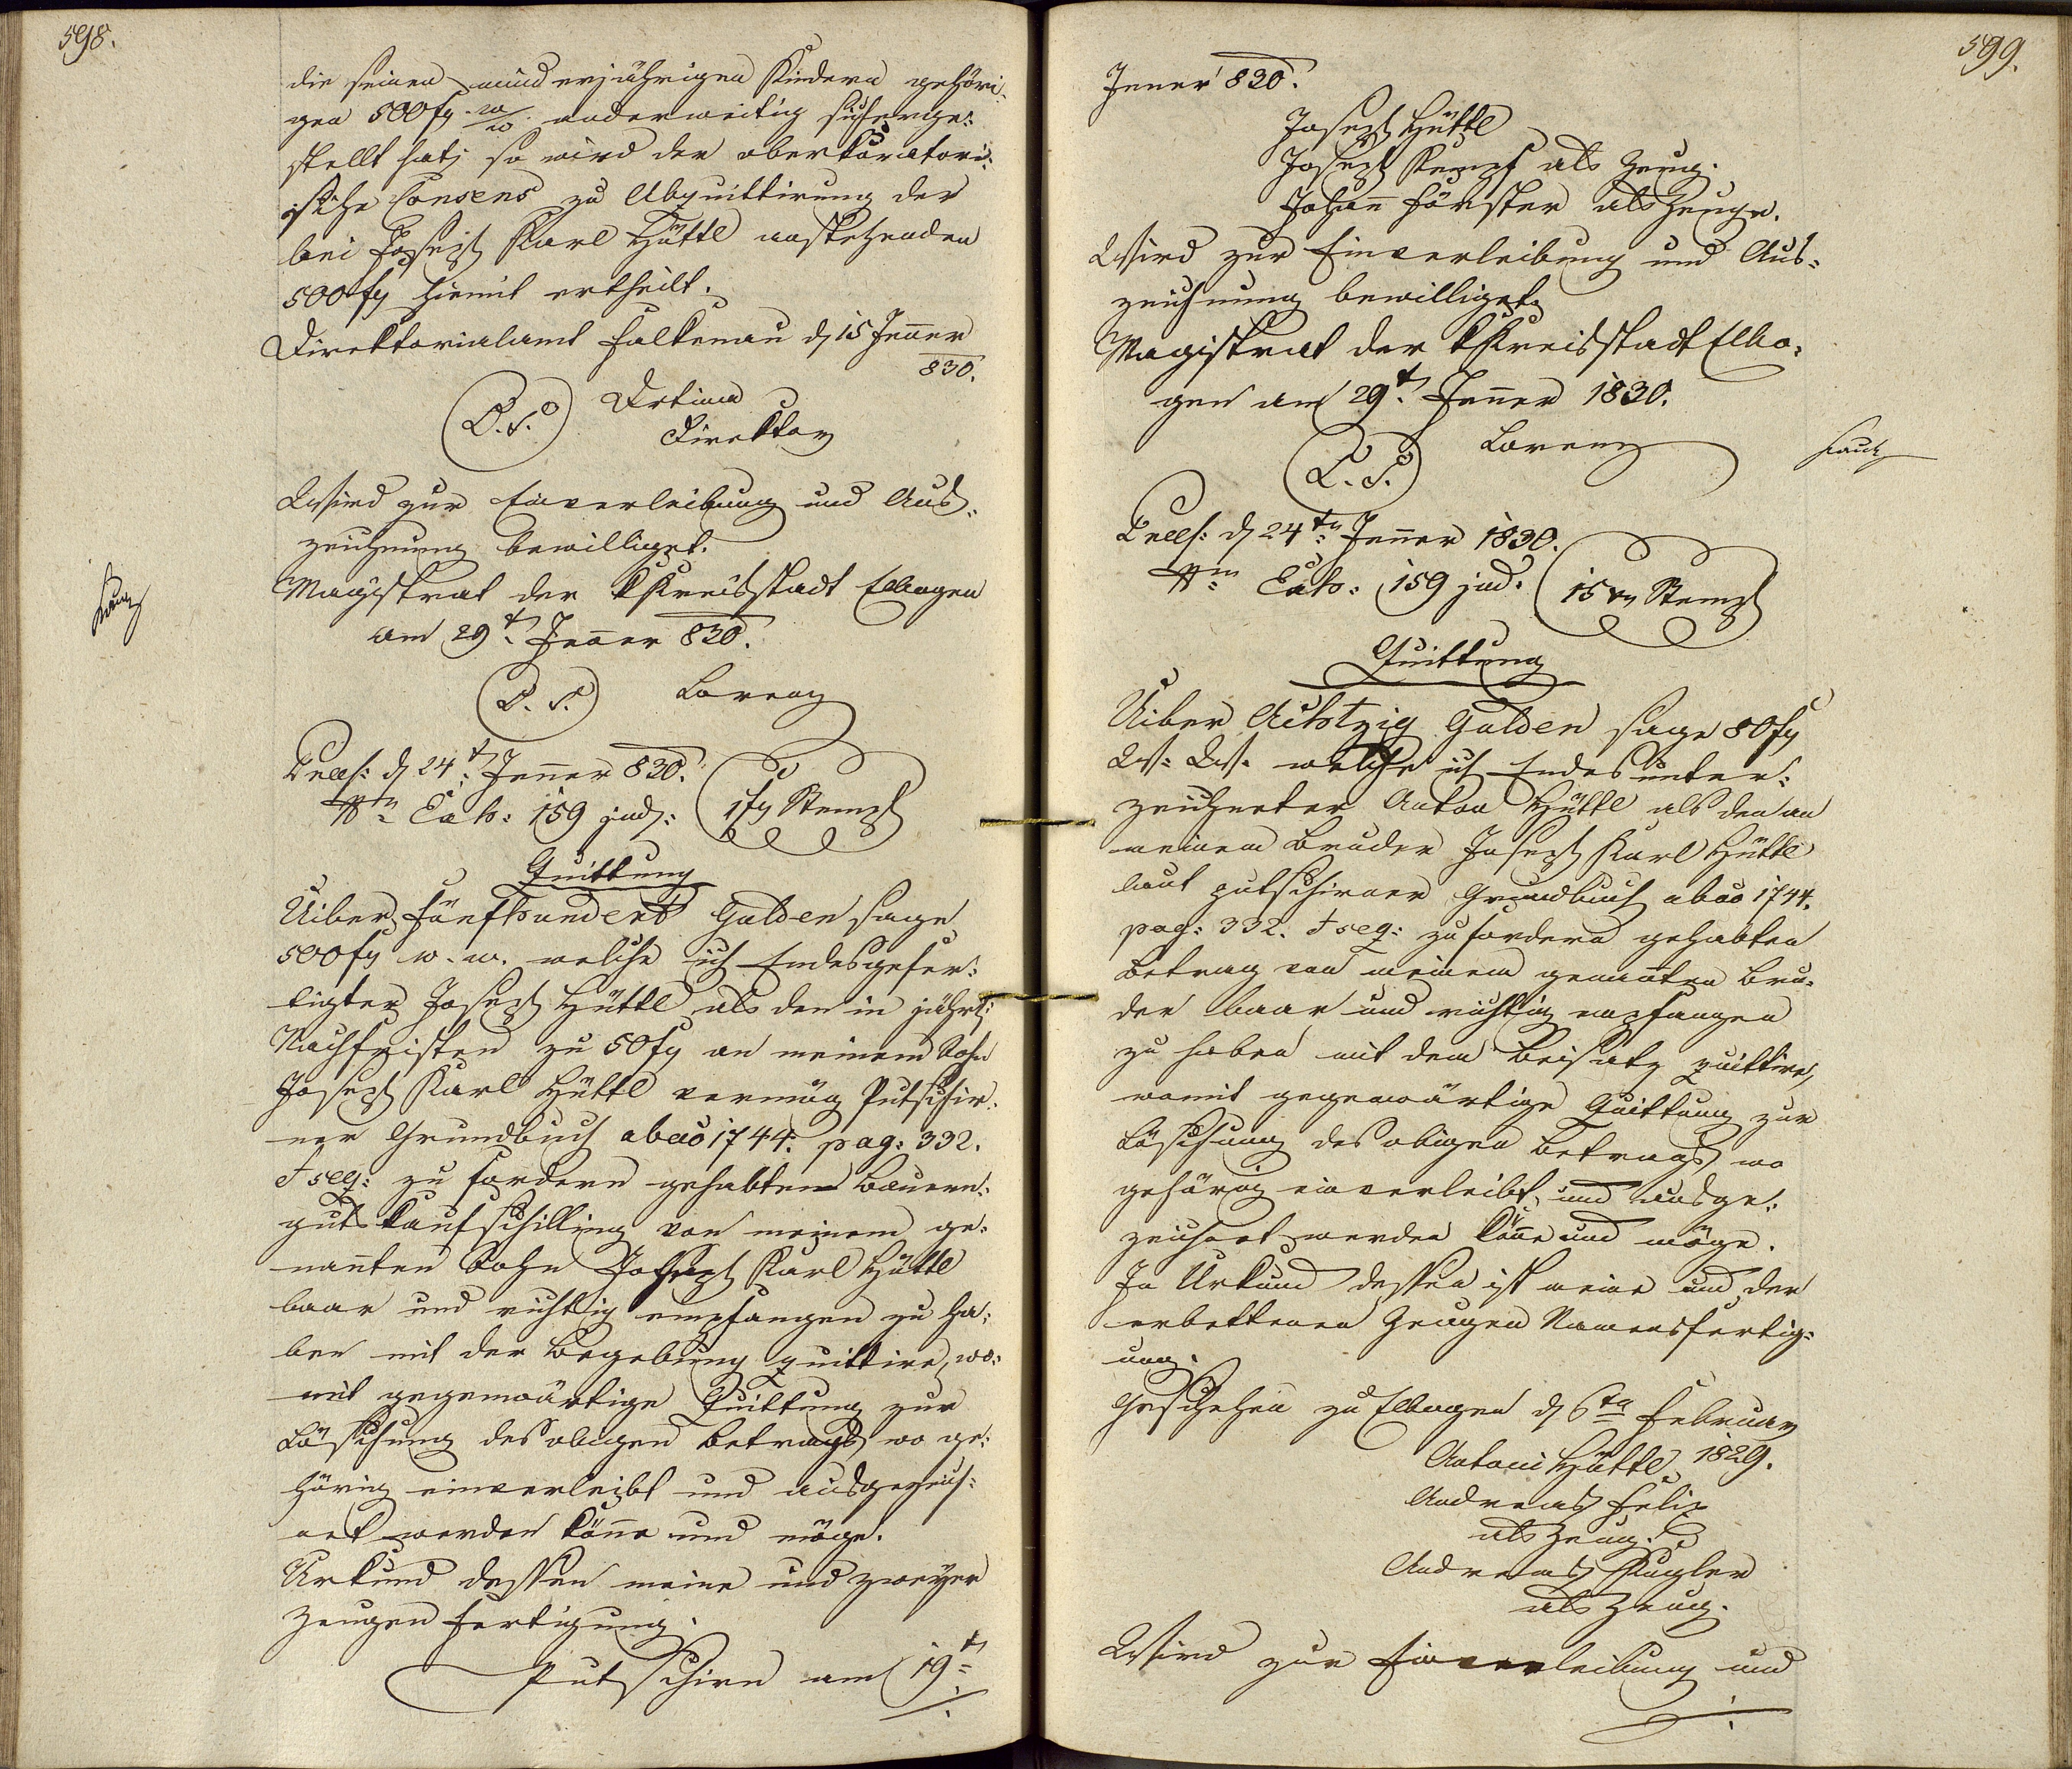 598.
die seinen minderjährigen Kindern gehöri-
gen 500 fl w/w. anderweitig sicherge-
stellt hat; so wird der oberkuratori-
sche Consens zu Abquittirung der
bei Joseph Karl Hüttl anstehenden
500 fl hiemit ertheilt.
Direktorialamt Falkenau d 15 Jenner
830.
(L. S.)
Direktor
Wird zur Einverleibung und Aus-
zeichnung bewilliget.
Magistrat der k Kreisstadt Elbogen
am 29t. Jenner 830.
(L. S.) Lorenz
Praes: d 24t. Jenner 830.
Exh: 159 jud: 1 fl Stempl
Quittung
Uiber Fünfhundert Gulden sage
500 fl w. w. welche ich Endesgefer-
tigter Joseph Hüttl als den in jährl:
Nachfristen zu 50 fl an meinem Sohn
Joseph Karl Hüttl vermög Putschir-
ner Grundbuch abao 1744. pag: 332.
& seq: zu fordern gehabten Bauern-
guts Kaufschilling von meinem ge-
nannten Sohn Joseph Karl Hüttl
baar und richtig empfangen zu ha-
ben mit der Begebung quittire, wo-
mit gegenwärtige Quittung zur
Löschung des obigen Betrags wo ge-
hörig einverleibt und ausgezeich-
net werden könne und möge.
Urkund dessen meine und zweyer
Zeugen Fertigung.
Putschirn am 19t
599.
Jenner 830.
Joseph Hüttl
Joseph Kempf als Zeug.
Johann Förster als Zeuge.
Wird zur Einverleibung und Aus-
zeichnung bewilliget.
Magistrat der k Kreisstadt Elbo-
gen am 29t. Jenner 1830.
(L. S.) Lorenz
Praes: d 24tn Jenner 1830.
Exh: 159 jud: 15 xr Stempl
Quittung
Uiber Achtzig Gulden sage 80 fl
W. W. welche ich Endesunter-
zeichneter Anton Hüttl als den an
meinem Bruder Joseph Karl Hüttl
laut putschirner Grundbuch abao 1744.
pag: 332. & seq: zu fordern gehabten
Betrag von meinem genannten Bru-
der baar und richtig empfangen
zu haben mit dem Beisatz quittire,
womit gegenwärtige Quittung zur
Löschung des obigen Betrags wo
gehörig einverleibt und ausge-
zeichnet werden könne und möge.
In Urkund dessen ist meine und der
erbettenen Zeugen Namensfertig-
ung.
Geschehen zu Elbogen d 6ta Februar
1829.
Antoni Hüttl
Andreas Felix
als Zeug.
Andreas Kugler
als Zeug.
Wird zur Einverleibung und